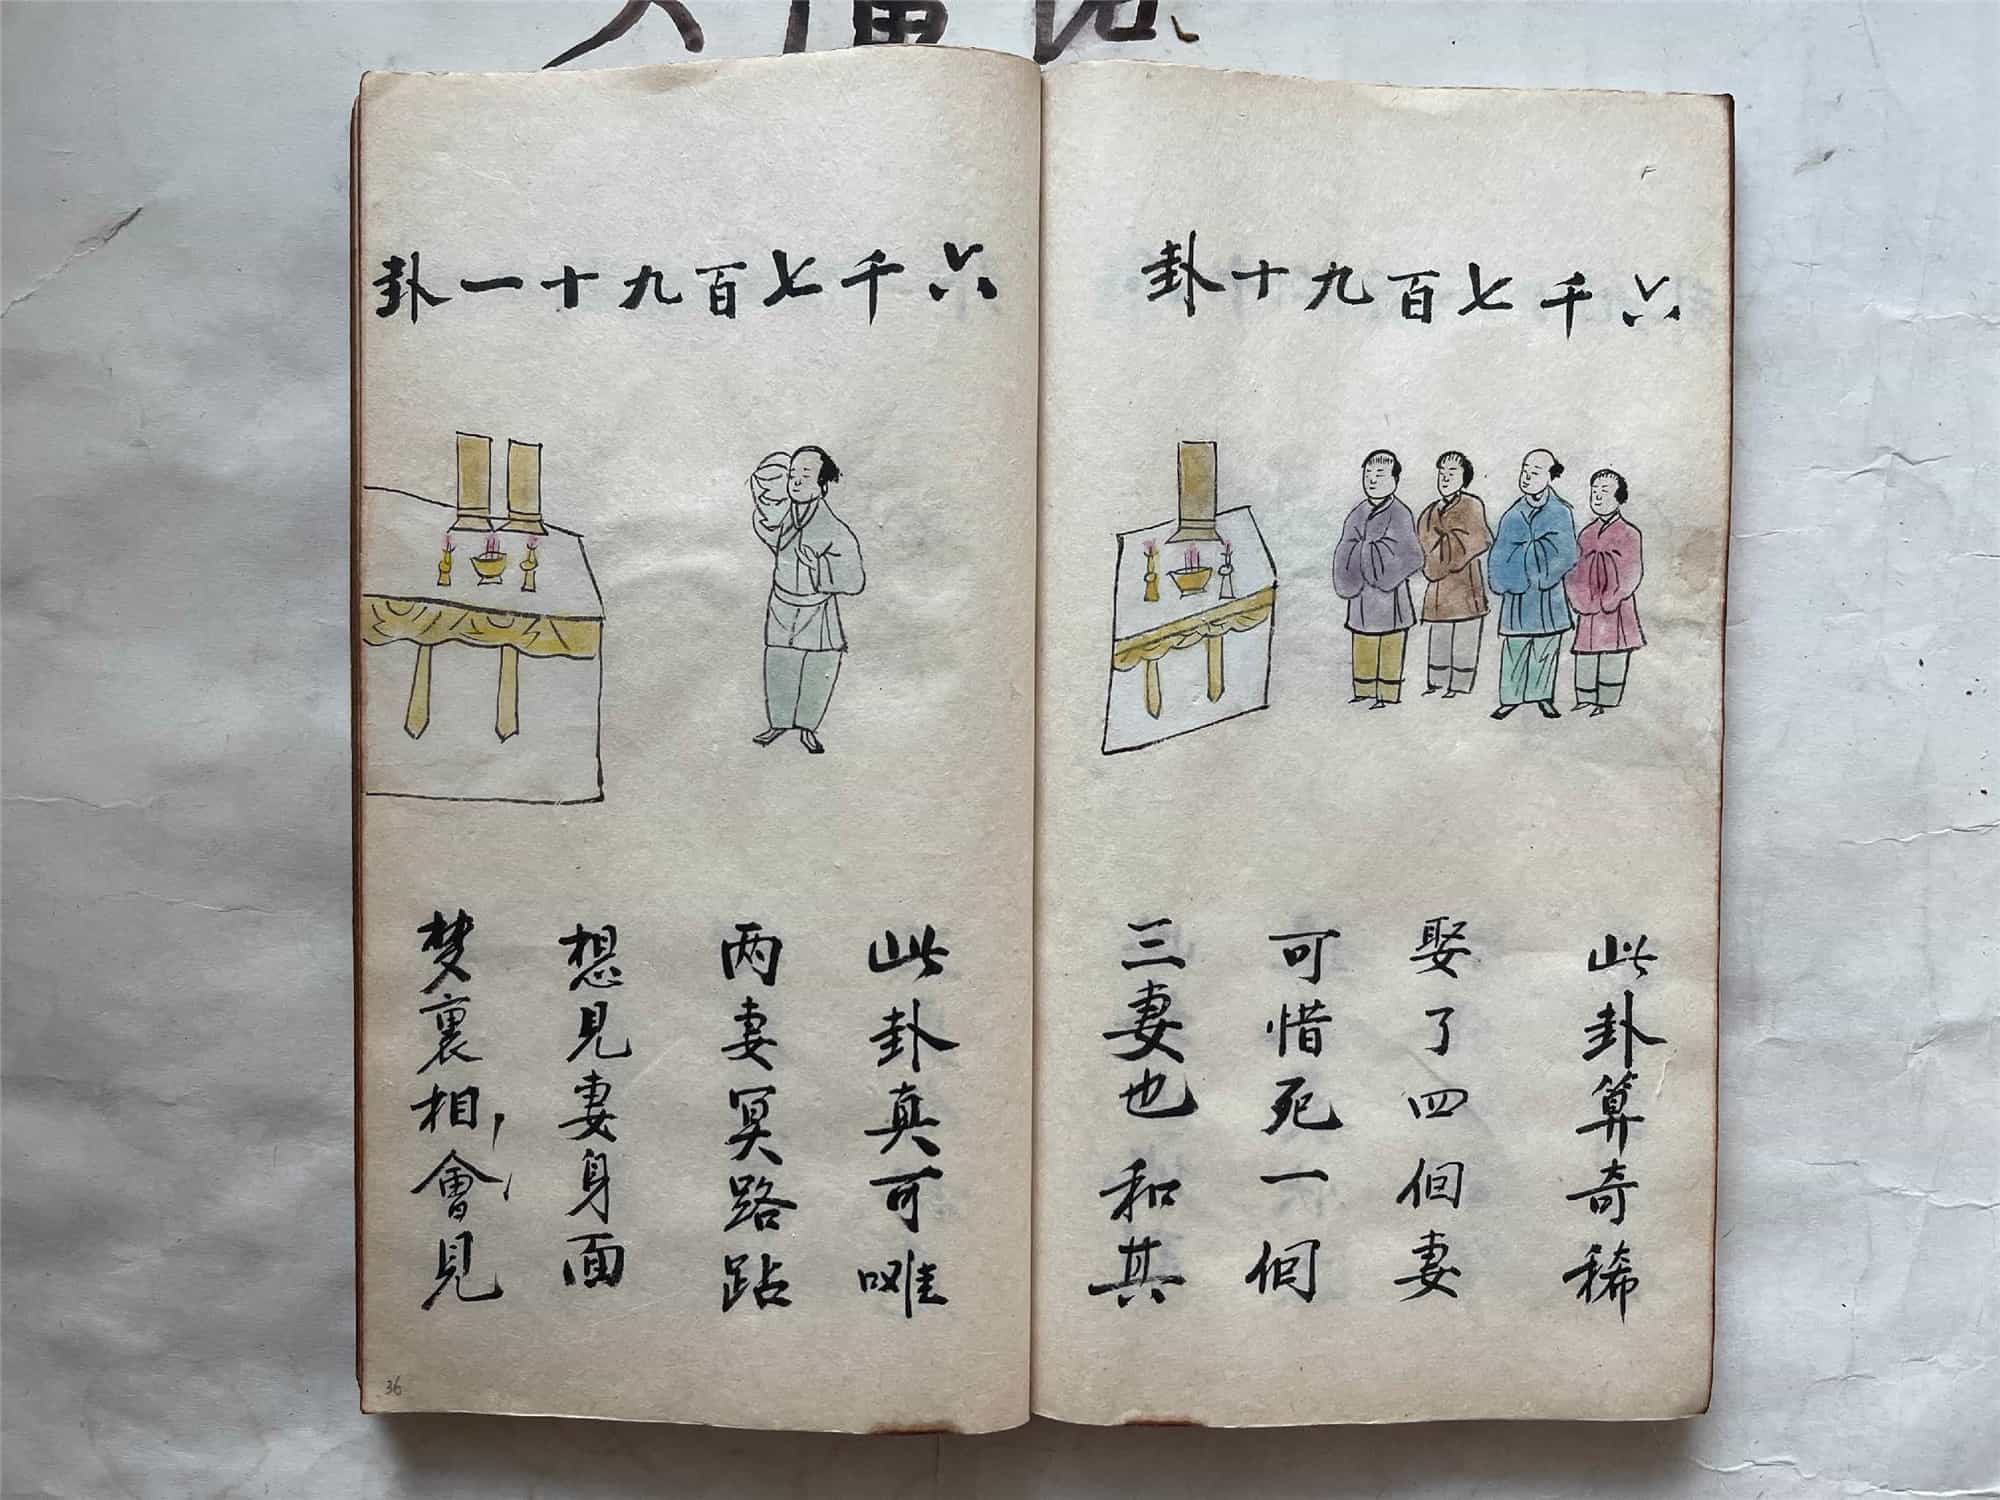 六千七百九十卦
此卦算奇稀
娶了四個妻
可惜死一個
三妻也和其
六千七百九十一卦
此卦真可唯
两妻冥路跕
想見妻身面
梦裏相會見
36